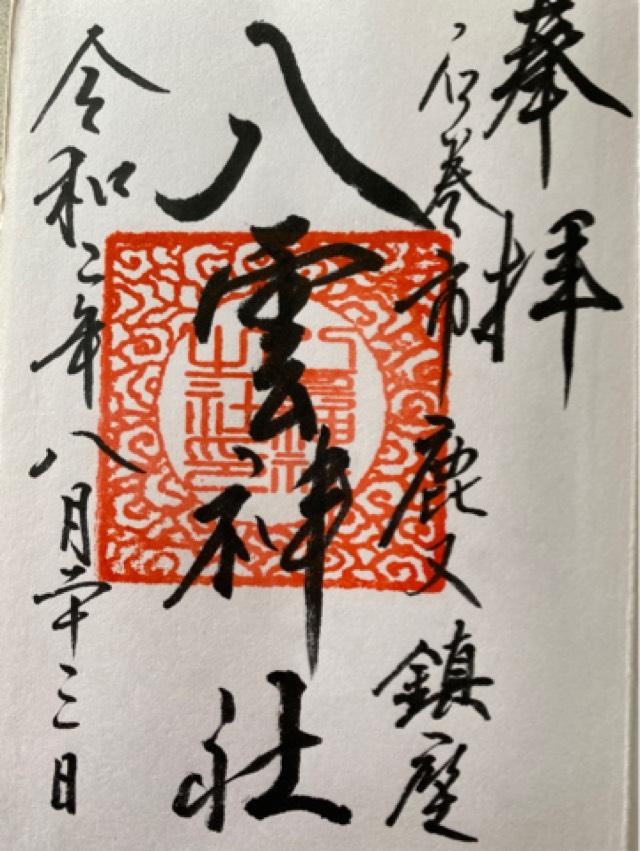 奉拝
石巻市鹿又鎮座
八雲神社
令和二年八月二十三日